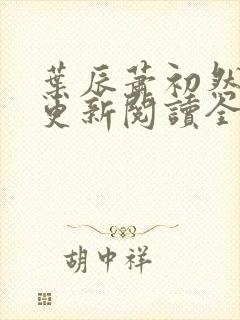 葉辰蕭初然
更新閱讀全
胡中祥